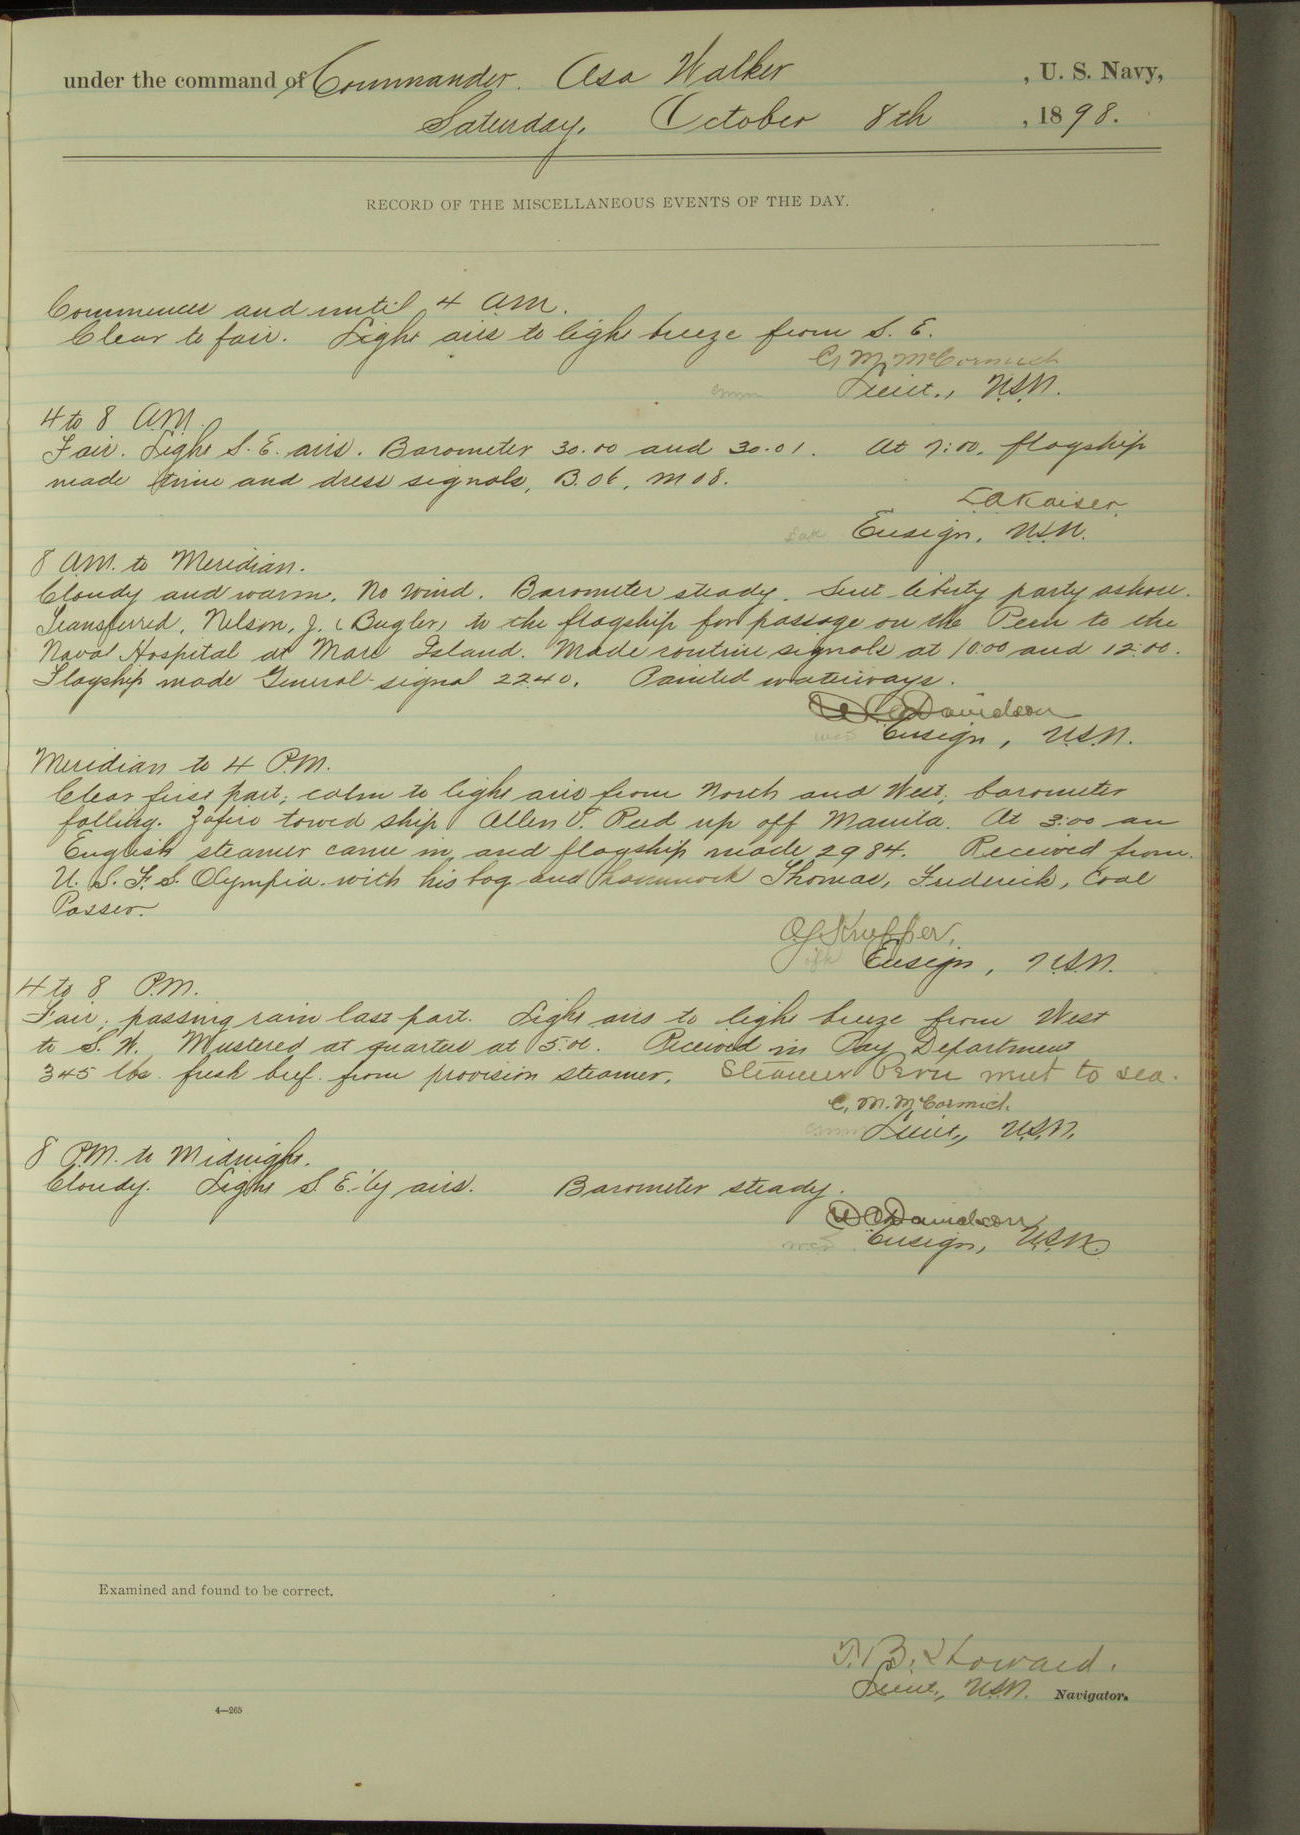 under the command of Commander. Asa Walker , U. S. Navy,
Saturday, October 8th , 1898.
RECORD OF THE MISCELLANEOUS EVENTS OF THE DAY.
Commences and until 4 A.M.
Clear to fair. Light airs to light breeze from S. E.
C. M. McCormick
Lieut., U.S.N.
4 to 8 A.M.
Fair. Light S. E. airs. Barometer 30.00 and 30.01. At 7:00, flagship
made time and dress signals, B.06, M08.
L A Kaiser,
Ensign, U.S.N.
8 A.M. to Meridian.
Cloudy and warm. No wind. Barometer steady. Sent liberty party ashore.
Transferred, Nelson, J. (Bugler) to the flagship for passage on the Peru to the
Naval Hospital at Mare Island. Made routine signals at 10:00 and 12:00.
Flagship made General signal 2240. Painted waterways.
W C Davidson
Ensign, U.S.N.
Meridian to 4 P.M.
Clear first part; calm to light airs from North and West; barometer
falling. Zafiro towed ship Allen T. Reed up off Manila. At 3:00 an
English steamer came in and flagship made 2984. Received from
U. S. F. S. Olympia with his bag and hammock Thomas, Frederick, Coal
Passer.
Ensign, U.S.N.
4 to 8 P.M.
Fair; passing rain last part. Light airs to light breeze from West
to S. W. Mustered at quarters at 5:00. Received in Pay Department
345 lbs. fresh beef from provision steamer. Steamer Peru went to sea.
C. M. McCormick.
Lieut., U.S.N.
8 P.M. to Midnight.
Cloudy. Light S. E.'ly airs. Barometer steady.
W C Davidson
Ensign, U.S.N.
Examined and found to be correct.
T. B. Howard.
Lieut., U.S.N. Navigator.
4—265